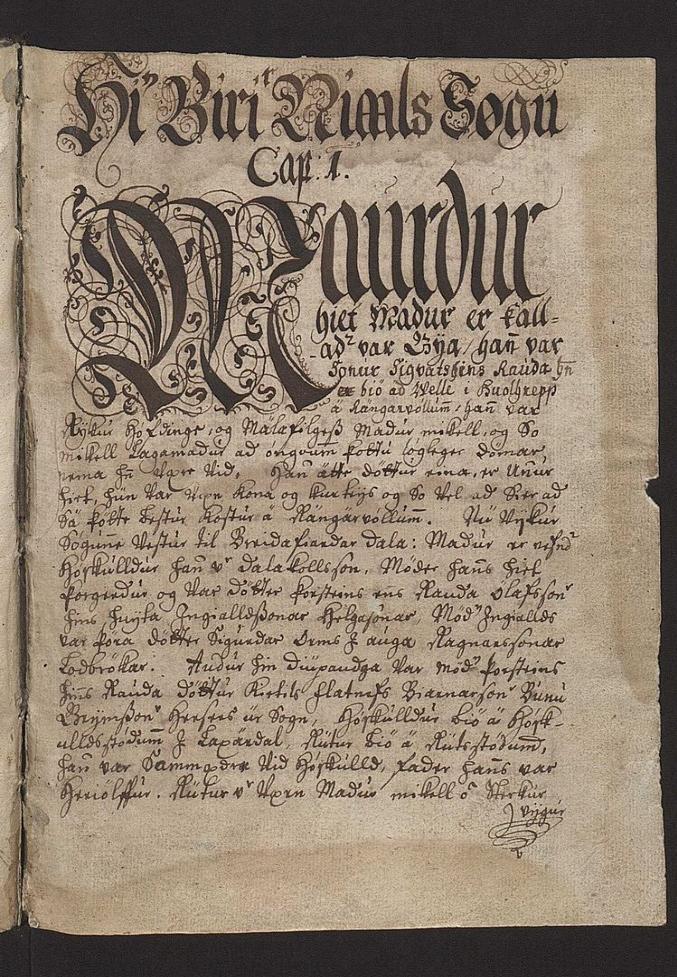 Hi Biriʳ Niaals Søgu
Cap: 1.
Maurdur
hiet Madur er kall-
adʳ var Gÿa, hañ var
Sonur Sigvatshins Rauda hn̄
bio ad Velle i
a Rangarvöllum, hañ var
Rÿkur Hofdinge, og Malafilgeß Madur mikell, og So
mikell Lagamadur ad ongvum þottu løgleger domar
nema hn̄ være vid, Hañ atte dottur eina, er Unur
hiet, hun var væn kona og kurteÿs og So vel ad Sier ad
Sa þotte bestur kostur á Rángárvöllum̄. Nu vÿkur
Sögune vestur til Breidafiardar dala: Madur er nefndʳ
Höskulldur hañ vʳ dalakollsson, Moder hañs hiet
Þorgerdur og var dotter Þorsteins ens Rauda Olafssonʳ
hins huÿta Ingialldßonar Helgasonar, Modʳ Ingiallds
var Þora dotter Sigurdar Orms J auga Ragnarssonar
Lodbrokar. Audur hin diupaudga var modʳ Þorsteins
hins Rauda dottur Kietils flatnefs Biarnarsonʳ Bunu
Grÿmßonʳ Hersers ur Sogn, Höskulldur bio á Hösk-
ulldsstodum̄ J Laxárdal, Rutur bio á Rutsstodum̄,
hañ var Sammædre vid Höskulld, fader hañs var
Heriolffur. Rutur vʳ væn Madur mikell oᵍ Sterkur
J vijgum